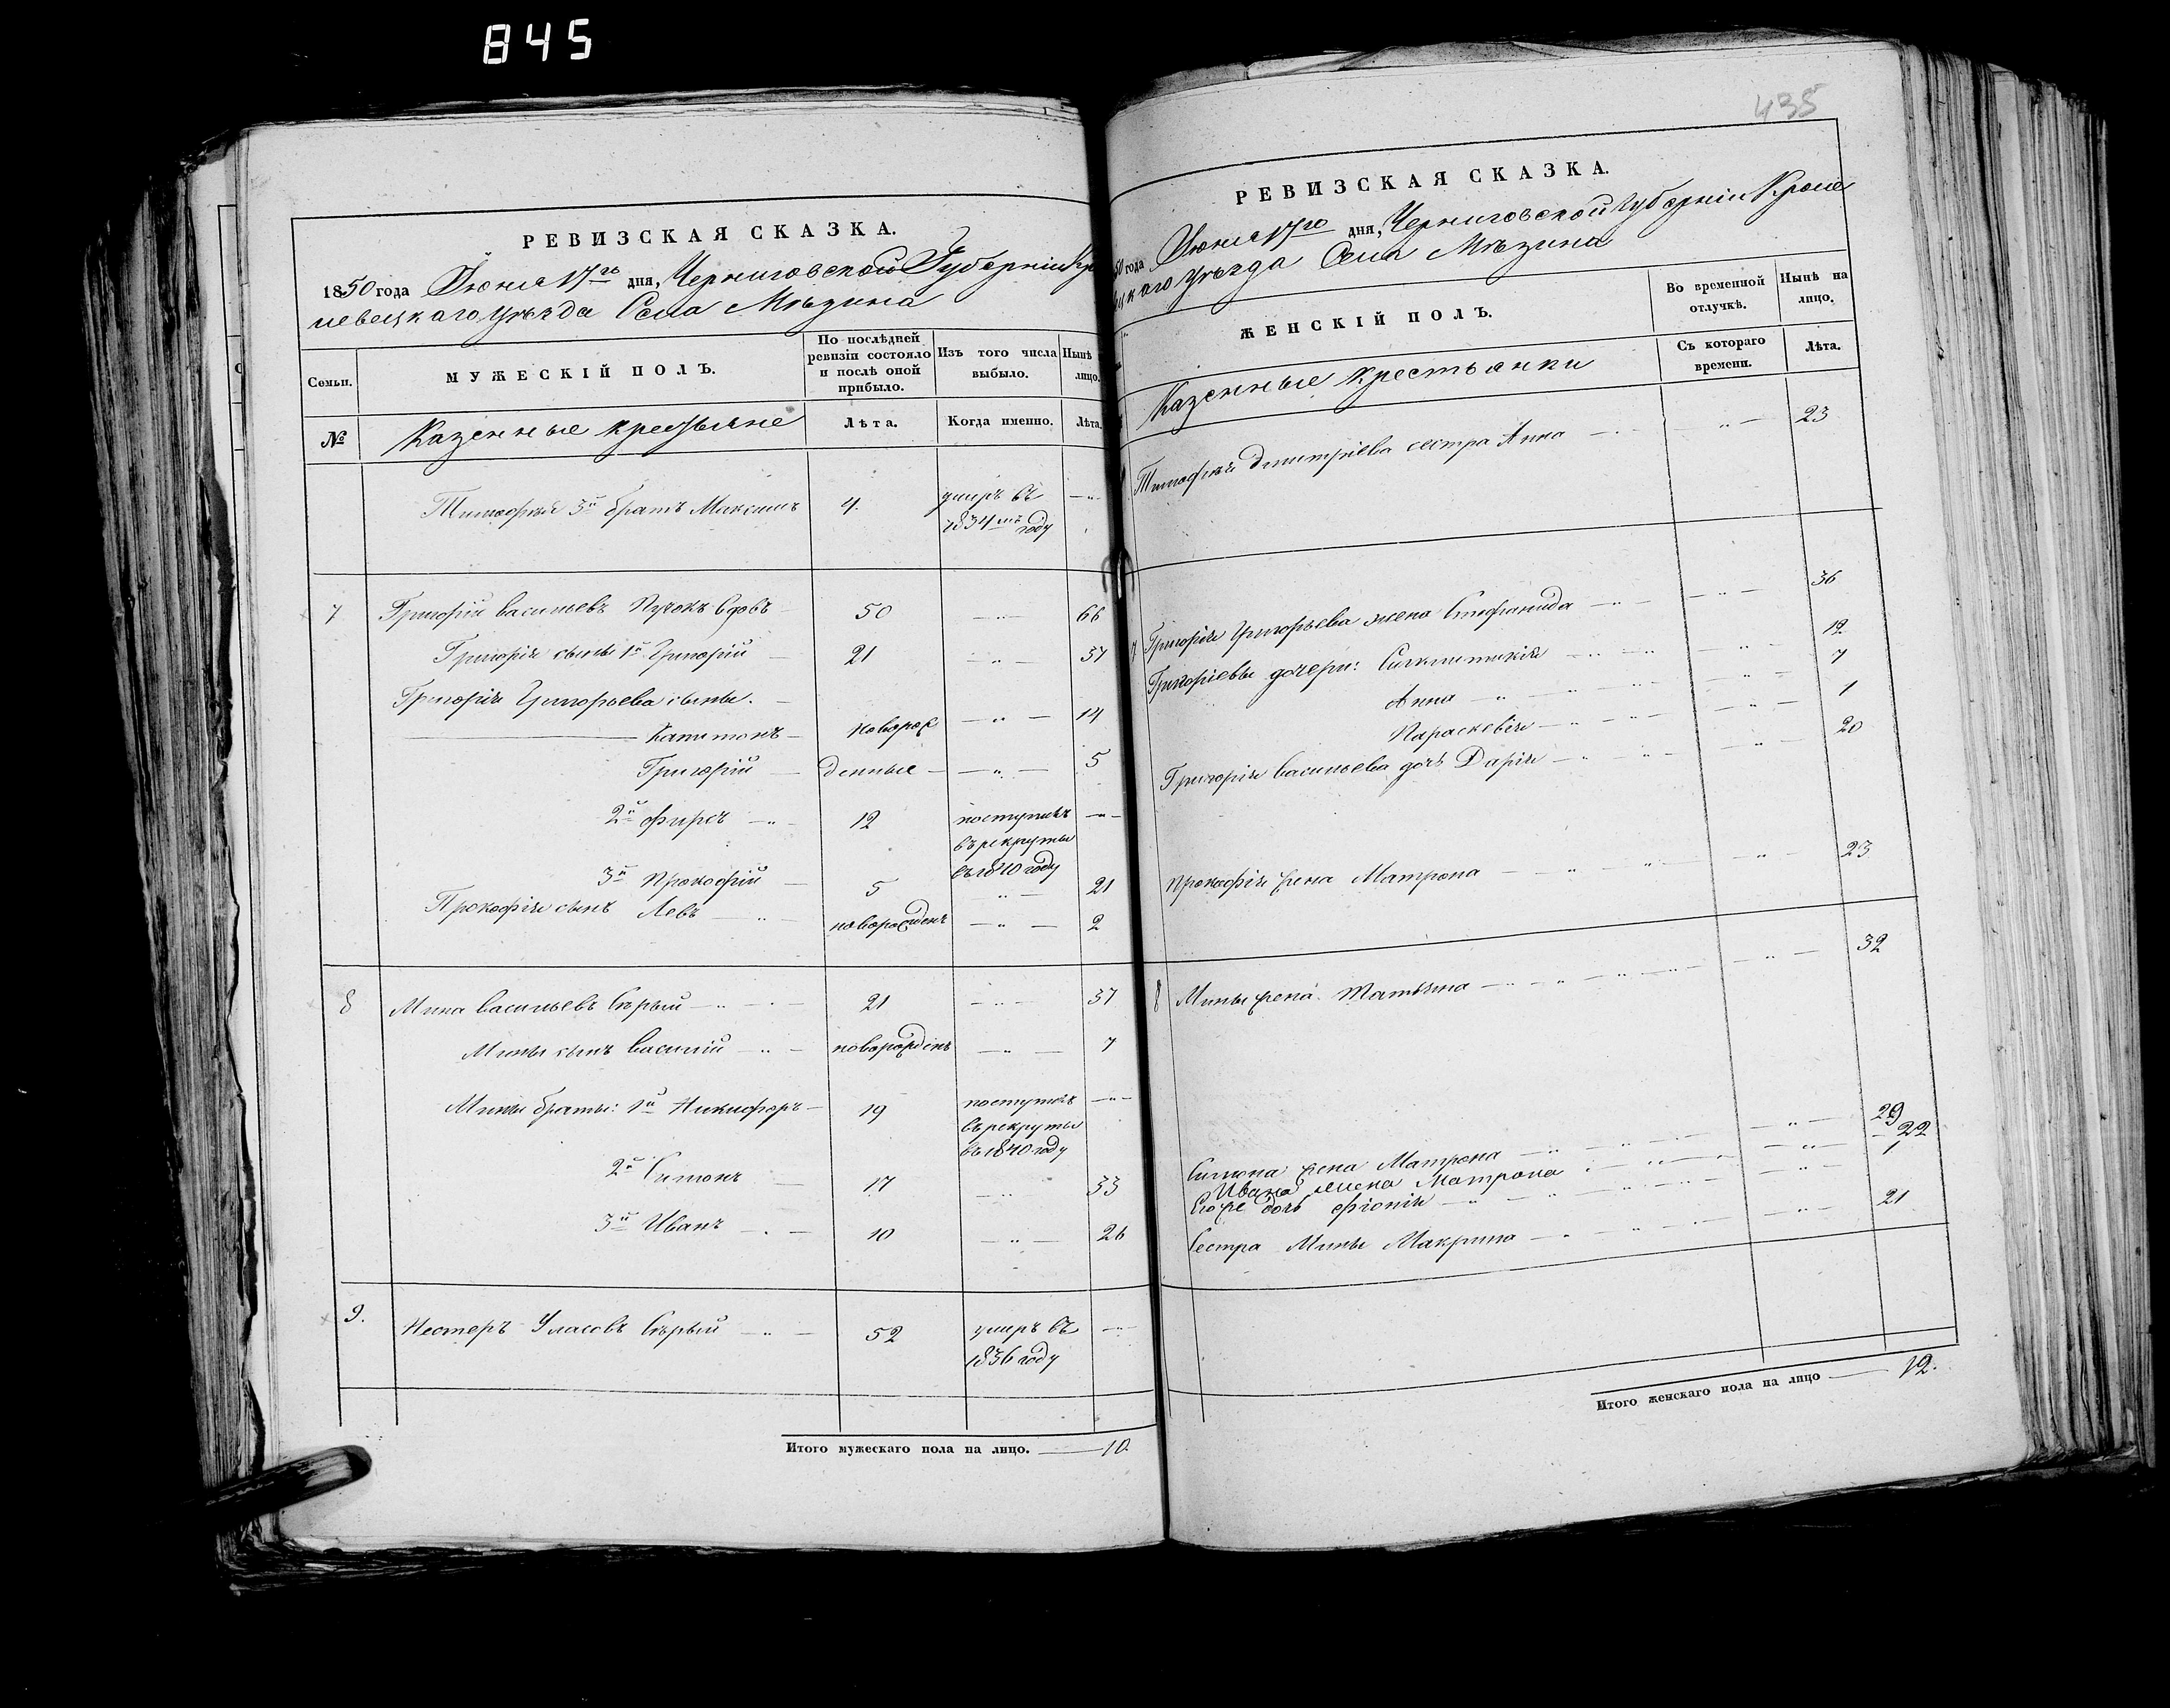 845
РЕВИЗСКАЯ СКАЗКА.
1850 года Июня 17го дня, Черниговской Губерніи Кро
левецкаго уѣзда Села Мѣзина
Семьи.
МУЖЕСКІЙ ПОЛЪ.
По послѣдней ревизіи состояло и послѣ оной прибыло.
Изъ того числа выбыло.
Нынѣ лицо.
№
Казенные крестьяне
Лѣта.
Когда именно.
Лѣта.
Тимофѣя 3й братъ Максимъ 4. умеръ въ —„—
1834мъ году
7 Григорій Васильевъ Пучокъ вдовъ 50 —„— 66
Григорія сыны 1й Григорій 21 —„— 37
Григорія Григорьева сыны.
Капитонъ новорож —„— 14
Григорій денные —„— 5
2й Фирсъ —„— 12 поступилъ —„—
въ рекруты
въ 1840 году
3й Прокофій 5 —„— 21
Прокофія сынъ Левъ —„— новорожденъ —„— 2
8 Мина Васильевъ Сѣрый —„— 21 —„— 37
Мины сынъ Василій —„— новорожденъ —„— 7
Мины браты: 1й Никифоръ — 19 поступилъ —„—
въ рекруты
въ 1840 году
2й Симонъ 17 —„— 33
3й Иванъ 10 —„— 26
9. Нестеръ Уласовъ Сѣрый —„— 52 умеръ въ —„—
1836 году
Итого мужескаго пола на лицо. — 10.
435
РЕВИЗСКАЯ СКАЗКА.
50 года Июня 17го дня, Черниговской Губерніи Кроле
вецкаго уѣзда Села Мѣзина
ЖЕНСКІЙ ПОЛЪ.
Во временной отлучкѣ.
Нынѣ на лицо.
Казенные крестьянки
Съ котораго времени.
Лѣта.
Тимофѣй Дмитріева сестра Анна —„— 23
7 Григорія Григорьева жена Стефанида —„— —„— 36
Григоріевы дочери: Синклитикія —„— —„— 12
Анна —„— —„— 7
Параскевія —„— —„— 1
Григорія Васильева дочь Дарія —„— —„— 20
Прокофія жена Матрона —„— —„— 23
8 Мины жена Татьяна —„— —„— 32
Симона жена Матрона —„— —„— 29
Ивана жена Матрона —„— —„— 22
Его же дочь Фіонія —„— —„— 1
Сестра Мины Макрина —„— —„— 21
Итого женскаго пола на лицо — 12.